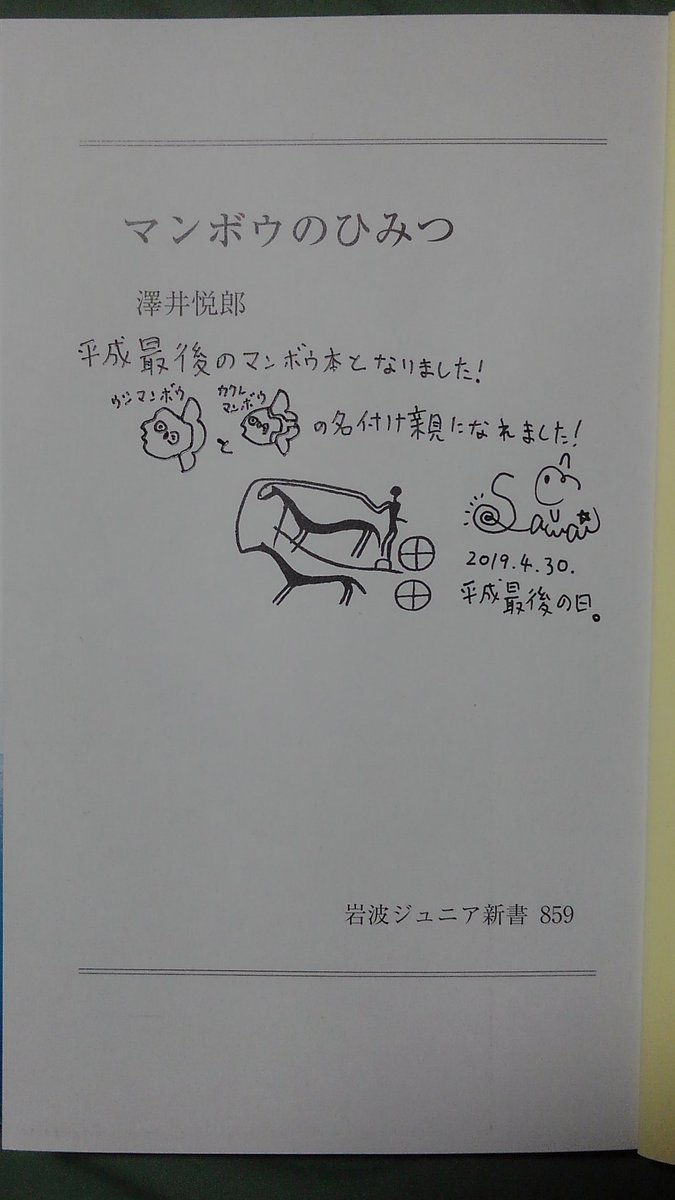 マンボウのひみつ
澤井悦郎
平成最後のマンボウ本となりました!
ウシマンボウ
と
カクレ
マンボウ
の名付け親になれました!
Sawai
2019.4.30.
平成最後の日。
岩波ジュニア新書 859